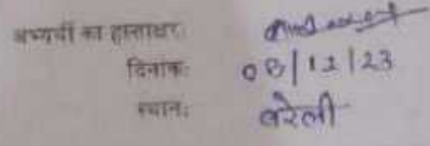 अभ्यर्थी का हस्ताक्षर:
दिनांक: 08/12/23
स्थान: बरेली